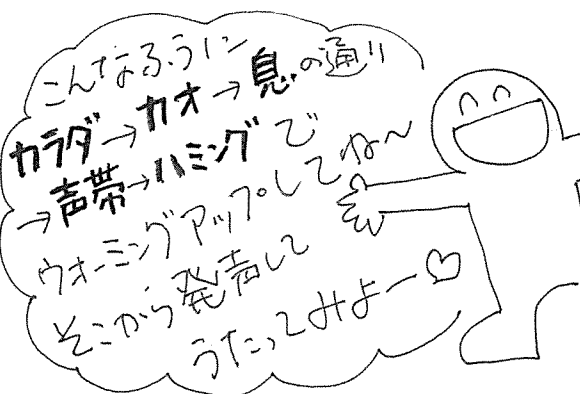 こんなふうに
カラダ→カオ→息の通り
→声帯→ハミングで
ウォーミングアップしてね〜
そこから発声して
うたってみよー♡